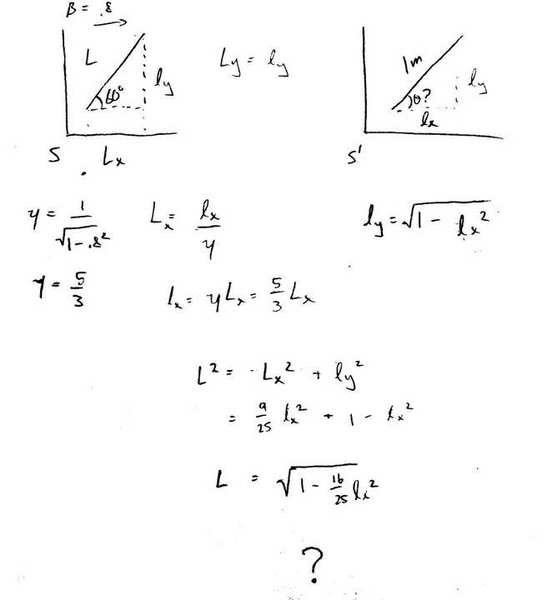 B = .8
L
ly
60°
S
Lx
Ly = ly
1m
θ?
ly
lx
S'
γ = 1/√(1-.8²)
Lx = lx/γ
ly = √(1 - lx²)
γ = 5/3
lx = γLx = 5/3 Lx
L² = Lx² + ly²
= 9/25 lx² + 1 - lx²
L = √(1 - 16/25 lx²)
?